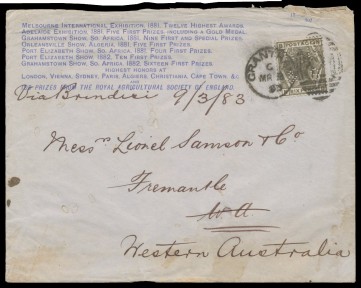 Melbourne International Exhibition, 1881, Twelve Highest Awards.
Adelaide Exhibition, 1881, Five First Prizes, including a Gold Medal.
Grahamstown Show, So. Africa, 1881, Nine First and Special Prizes.
Orleansville Show, Algeria, 1881, Five First Prizes.
Port Elizabeth Show, So. Africa, 1881, Four First Prizes.
Port Elizabeth Show, 1882, Ten First Prizes.
Grahamstown Show, So. Africa, 1882, Sixteen First Prizes.
Highest Honors at
London, Vienna, Sydney, Paris, Algiers, Christiania, Cape Town, &c
and
Prizes from the Royal Agricultural Society of England.
Via Brindisi 9/3/83
GRANT
C
MR
83
Messrs Lionel Samson & Co
Fremantle
WA
Western Australia